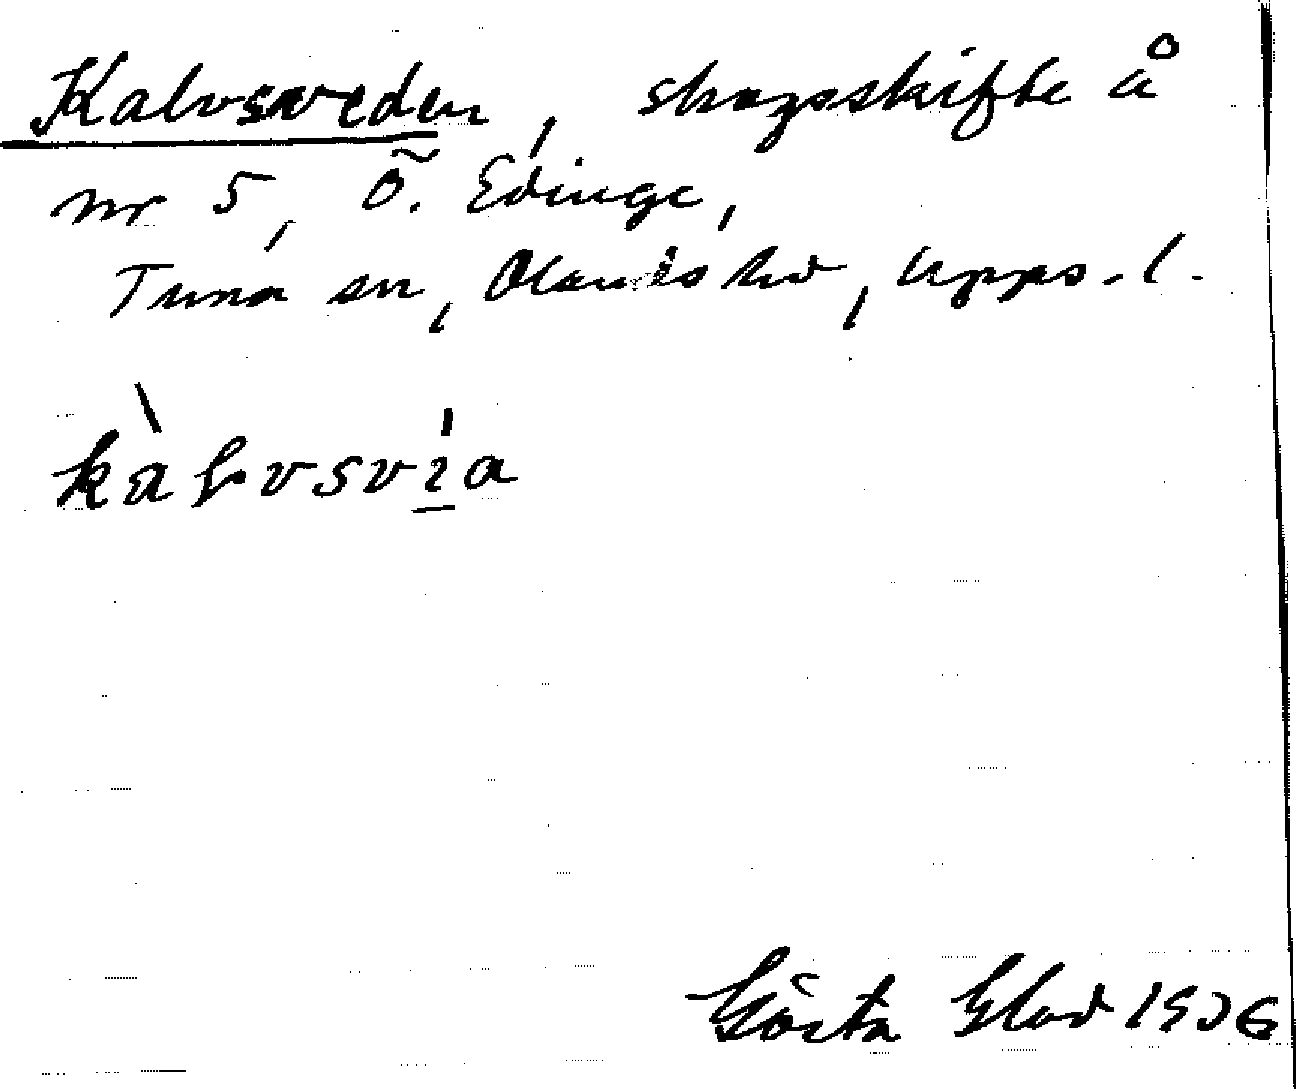 Kalvsveden, skogsskifte å
nr 5, Ö. Edinge,
Tuna sn, Olands hd, Upps. l.
kàlvsvi̠a
Gösta Glad 1936